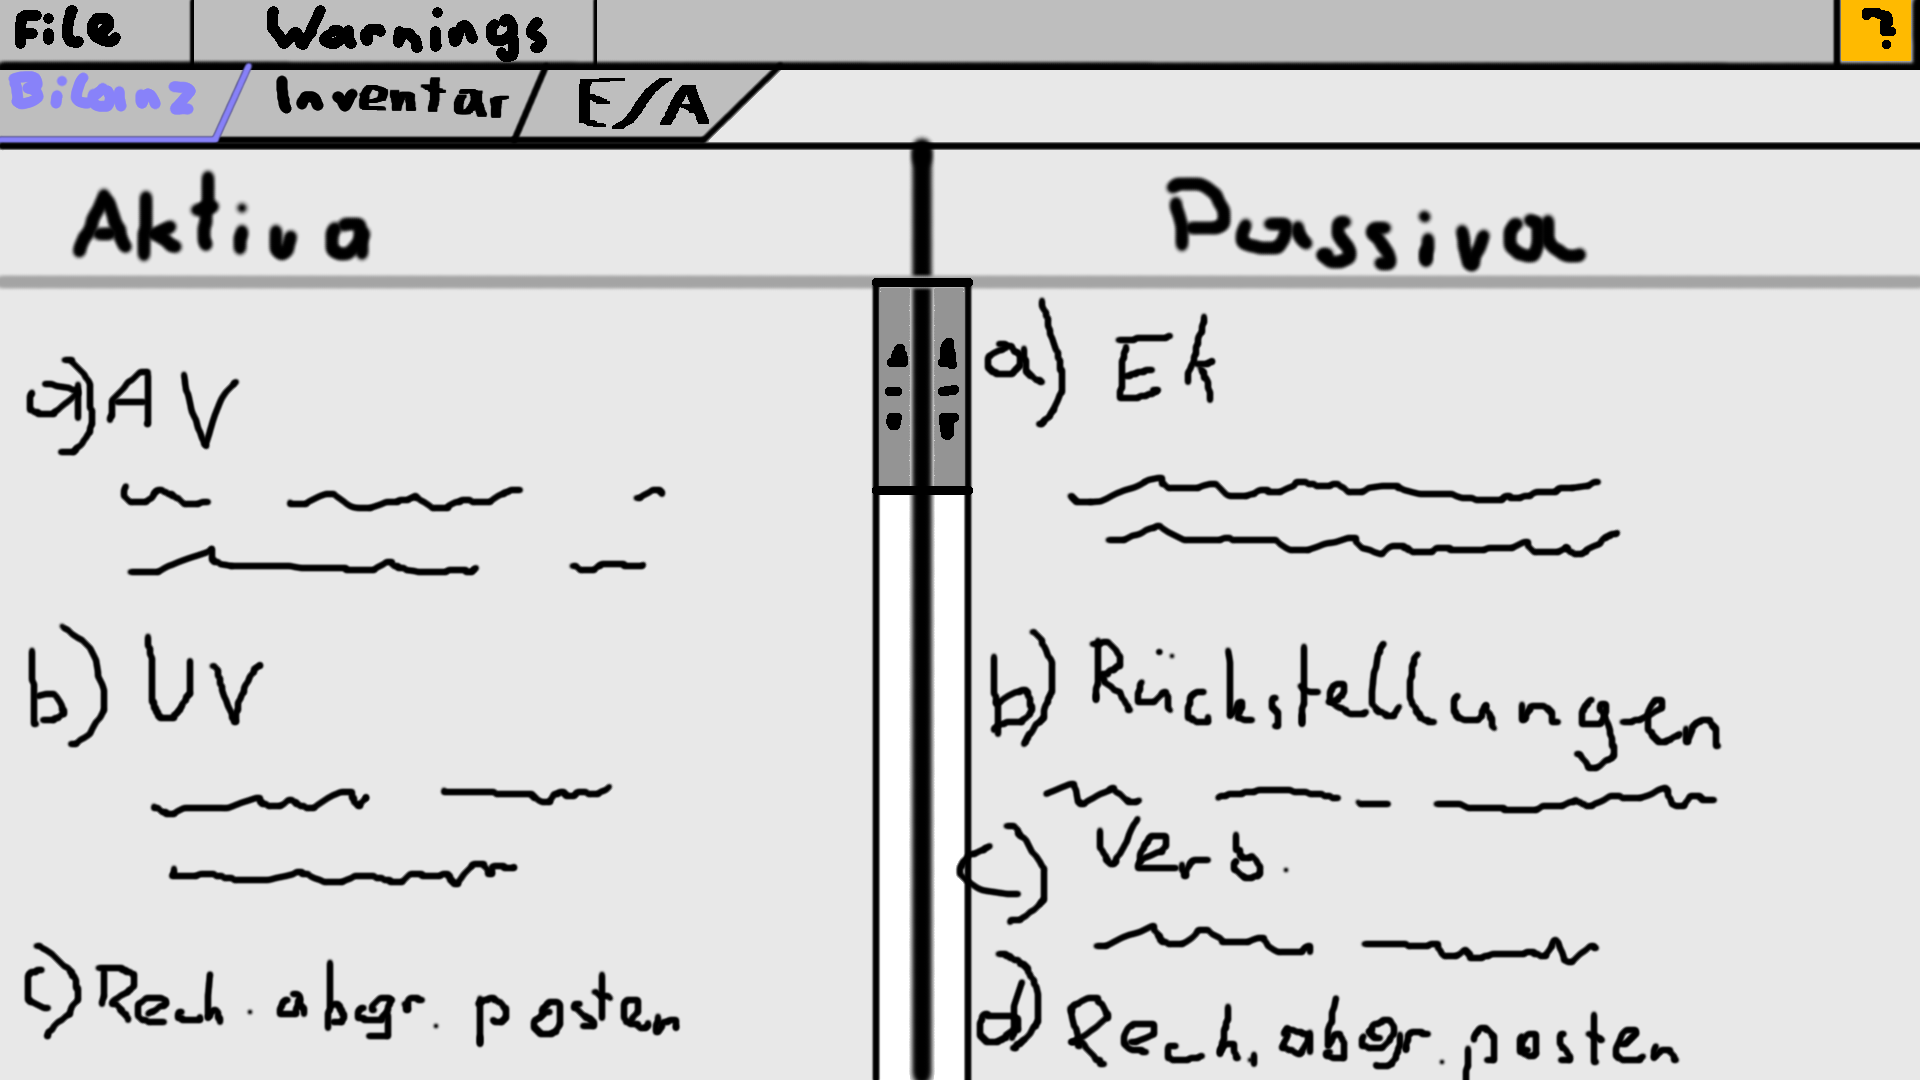 File Warnings ?
Bilanz Inventar E/A
Aktiva
Passiva
a) AV
b) UV
c) Rech. abgr. posten
a) Ek
b) Rückstellungen
c) Verb.
d) Rech. abgr. posten